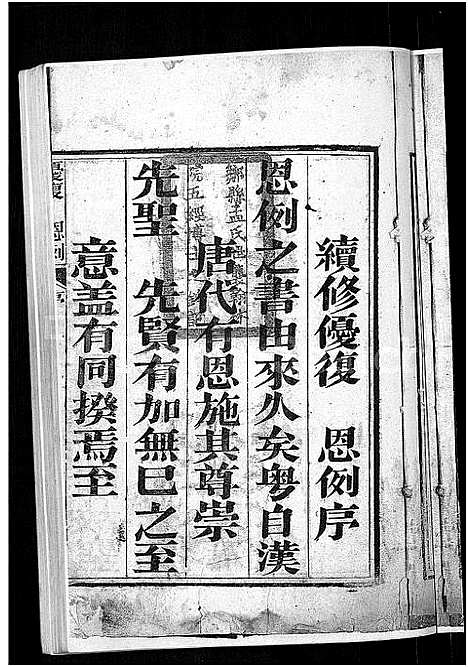 續修優復 恩例序
恩例之書由來久矣粤自漢
唐代有恩施其尊崇
先聖 先賢有加無已之至
意盖有同揆焉至